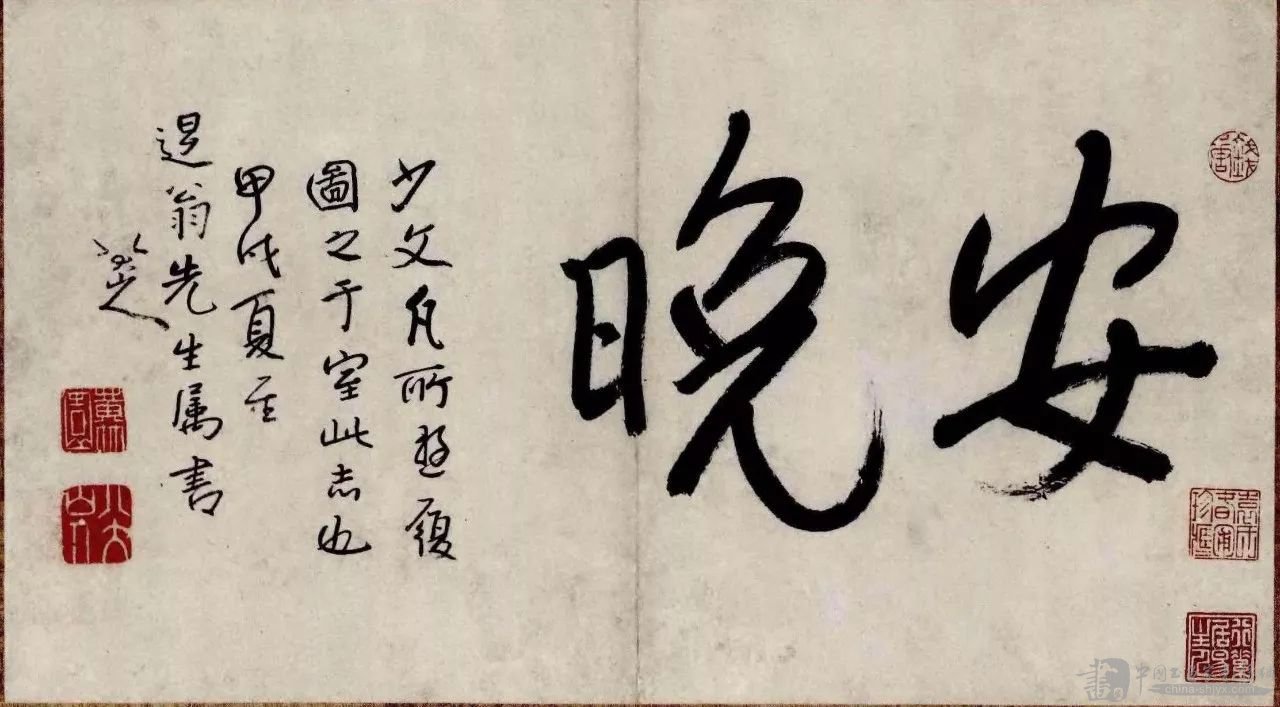 安晚
少文凡所遊履
圖之于室此志也
甲戌夏至
退翁先生属書
八大山人
八大山人
書
china-shiyx.com